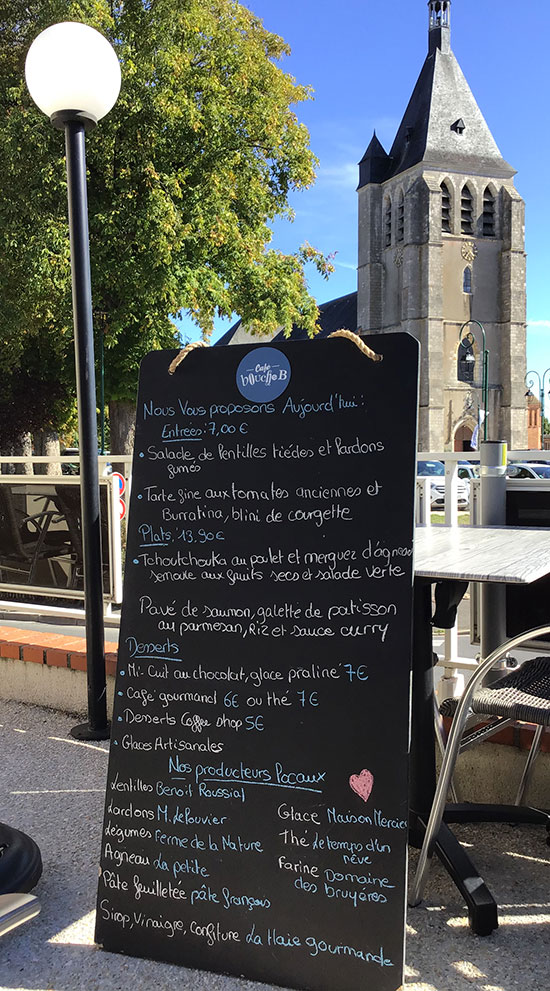 Café
bouche.B
Nous Vous proposons Aujourd'hui :
Entrées : 7,00 €
• Salade de lentilles tiédes et lardons
fumés
• Tarte fine aux tomates anciennes et
Burratina, blini de courgette
Plats, 13,90€
• Tchoutchouka au poulet et merguez d'agneau
semoule aux fruits secs et salade verte
Pavé de saumon, galette de patisson
au parmesan, Riz et sauce curry
Desserts
• Mi-Cuit au chocolat, glace praliné 7€
• Café gourmand 6€ ou thé 7€
• Desserts Coffee shop 5€
• Glaces Artisanales
Nos producteurs locaux
Lentilles Benoit Roussial
Lardons M. Lelouvier
Légumes Ferme de la Nature
Agneau La petite
Pâte feuilletée pâte françois
Glace Maison Mercier
Thé Le temps d'un
rêve
Farine Domaine
des bruyères
Sirop, Vinaigre, Confiture La Haie gourmande